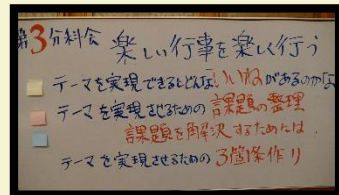 第3分科会 楽しい行事を楽しく行う
テーマを実現できるとどんないいねがあるのかな
テーマを実現させるための 課題の整理
課題を解決するためには
テーマを実現させるための 3箇条作り